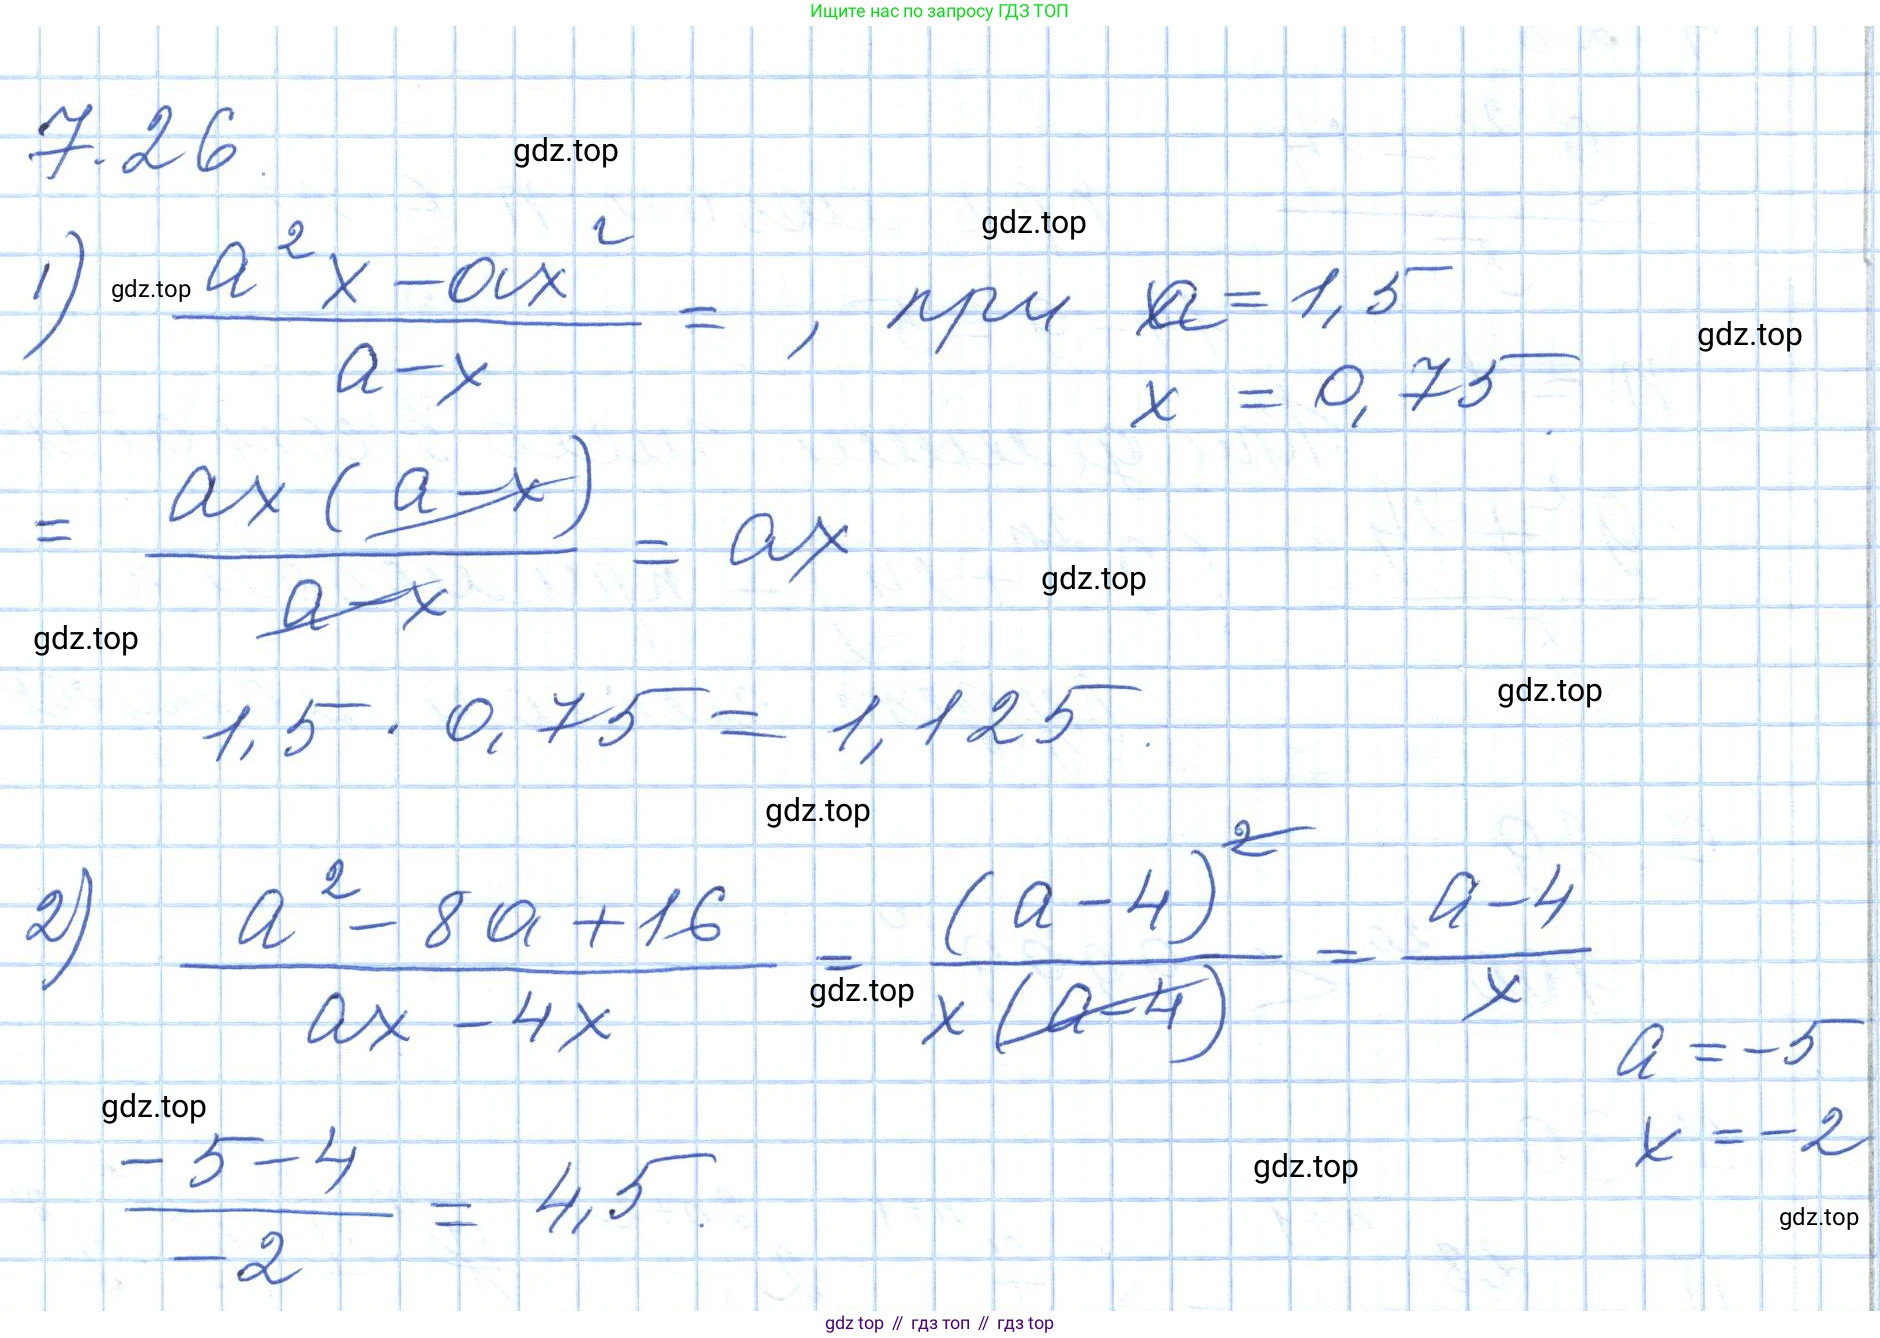 Ищите нас по запросу ГДЗ ТОП
7.26
gdz.top
gdz.top
1) (a²x - ax²)/(a - x) = , при a = 1,5
gdz.top
gdz.top
x = 0,75.
= (ax(a - x))/(a - x) = ax
gdz.top
gdz.top
gdz.top
1,5 · 0,75 = 1,125.
gdz.top
2) (a² - 8a + 16)/(ax - 4x) = (a - 4)²/(x(a - 4)) = (a - 4)/x
gdz.top
a = -5
x = -2
gdz.top
(-5 - 4)/(-2) = 4,5.
gdz.top
gdz.top
gdz top // гдз топ // гдз top